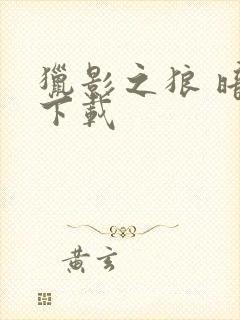 獵影之狼 暗
下載
黃玄